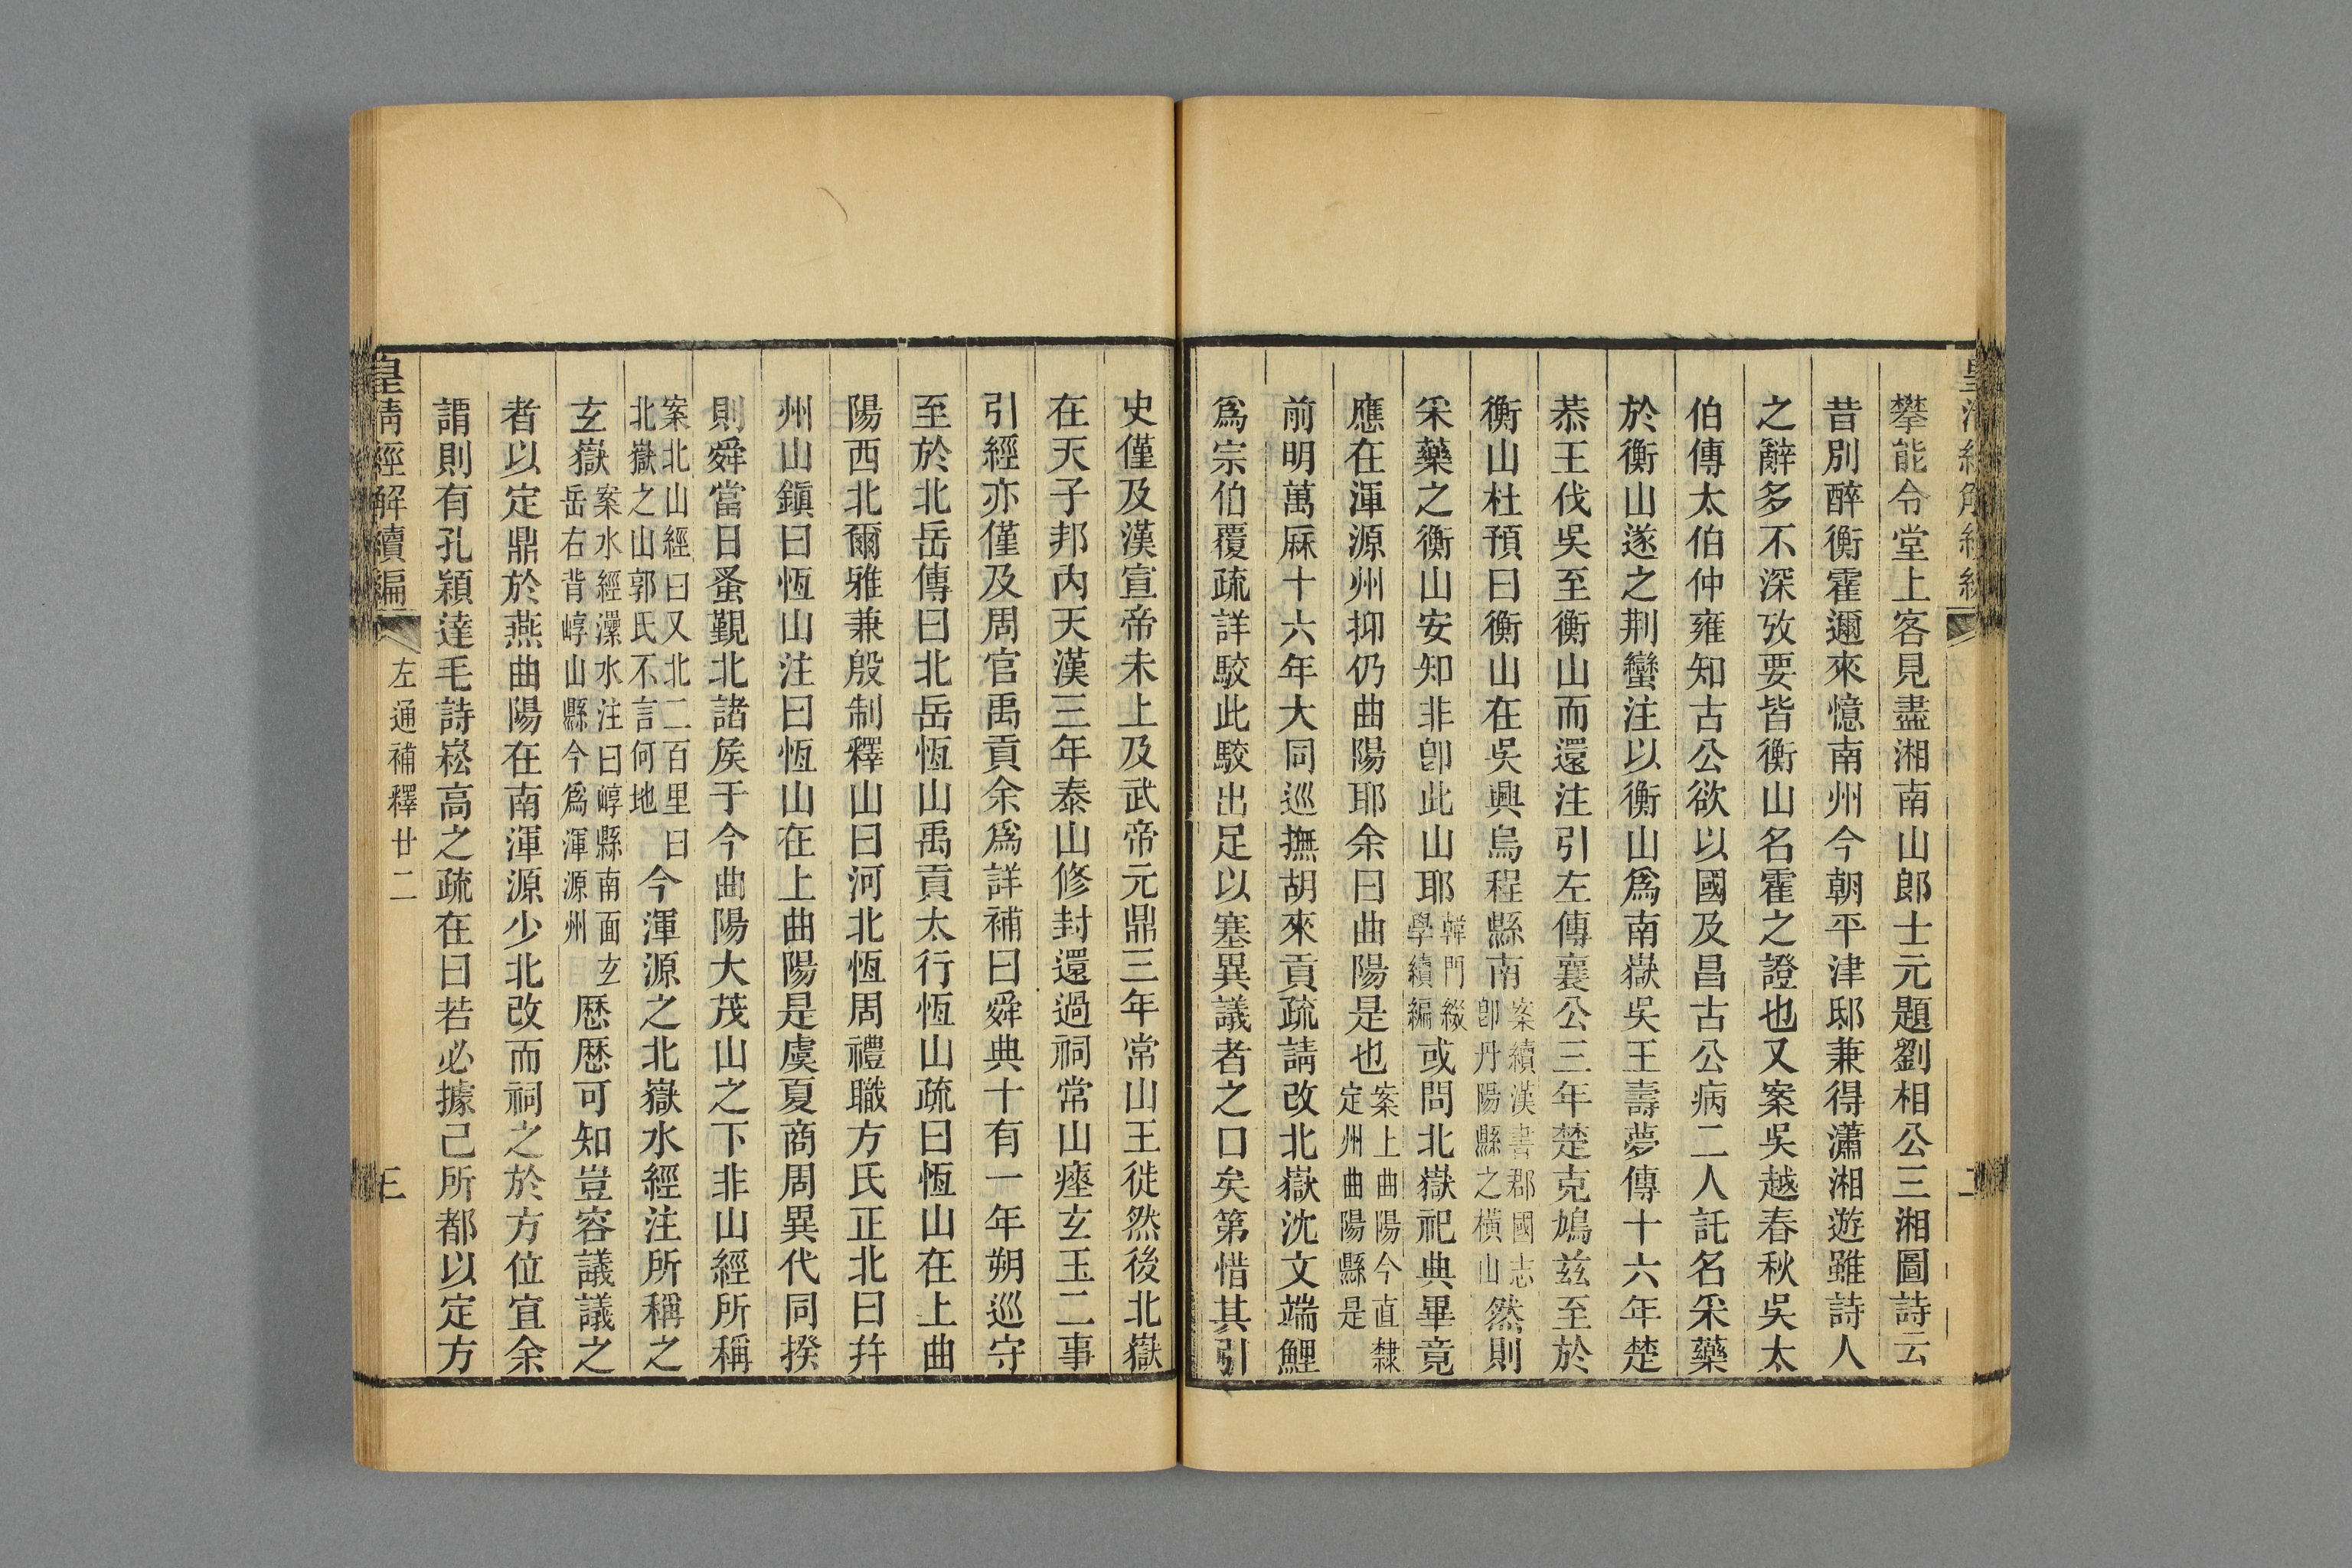 攀能令堂上客見盡湘南山郎士元題劉相公三湘圖詩云
昔別醉衡霍邇來憶南州今朝平津邸兼得瀟湘遊雖詩人
之辭多不深攷要皆衡山名霍之證也又案吳越春秋吳太
伯傳太伯仲雍知古公欲以國及昌古公病二人託名采藥
於衡山遂之荆蠻注以衡山爲南嶽吳王壽夢傳十六年楚
恭王伐吳至衡山而還注引左傳襄公三年楚克鳩兹至於
衡山杜預曰衡山在吳興烏程縣南案續漢書郡國志卽丹陽縣之橫山然則
采藥之衡山安知非卽此山耶韓門綴學續編或問北嶽祀典畢竟
應在渾源州抑仍曲陽耶余曰曲陽是也案上曲陽今直隸定州曲陽縣是
前明萬厤十六年大同巡撫胡來貢疏請改北嶽沈文端鯉
爲宗伯覆疏詳駮此駮出足以塞異議者之口矣第惜其引
史僅及漢宣帝未上及武帝元鼎三年常山王徙然後北嶽
在天子邦內天漢三年泰山修封還過祠常山瘞玄玉二事
引經亦僅及周官禹貢余爲詳補曰舜典十有一年朔巡守
至於北岳傳曰北岳恆山禹貢太行恆山疏曰恆山在上曲
陽西北爾雅兼殷制釋山曰河北恆周禮職方氏正北曰幷
州山鎭曰恆山注曰恆山在上曲陽是虞夏商周異代同揆
則舜當日蚤覲北諸矦于今曲陽大茂山之下非山經所稱
案北山經曰又北二百里曰北嶽之山郭氏不言何地今渾源之北嶽水經注所稱之
玄嶽案水經㶟水注曰崞縣南面玄岳右背崞山縣今爲渾源州厯厯可知豈容議議之
者以定鼎於燕曲陽在南渾源少北改而祠之於方位宜余
謂則有孔穎達毛詩崧高之疏在曰若必據己所都以定方
皇清經解續編
左通補釋廿二
三